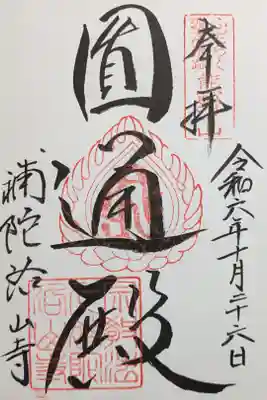 奉拝
令和六年十月二十六日
圓通殿
補陀洛山寺